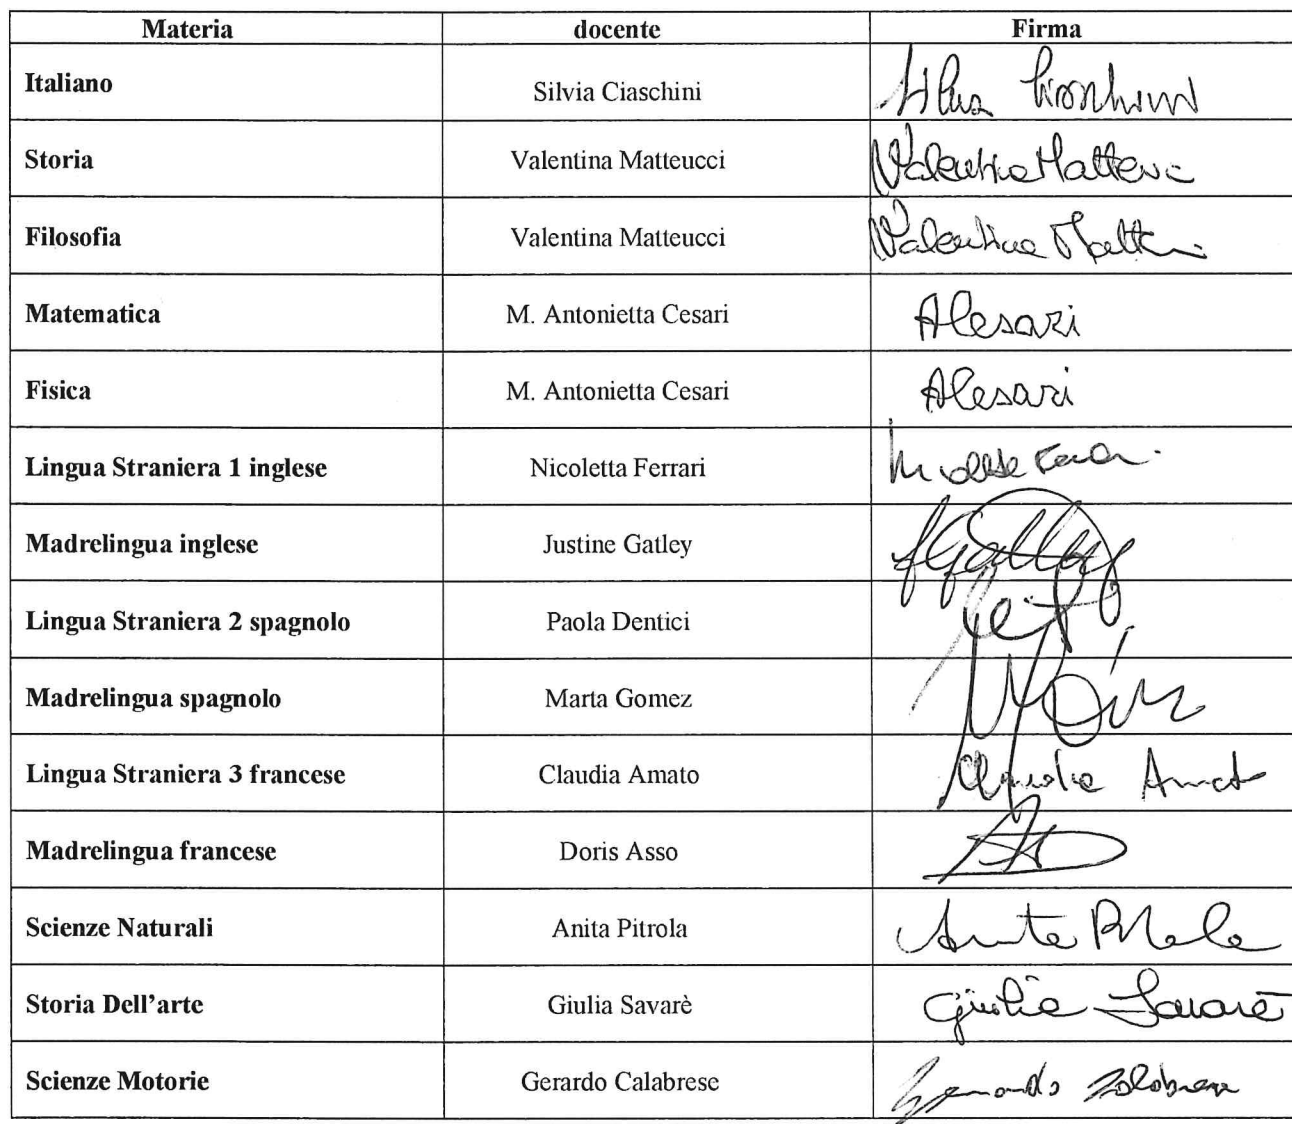 Materia docente Firma
Italiano Silvia Ciaschini
Storia Valentina Matteucci Valentina Matteucci
Filosofia Valentina Matteucci Valentina Matteucci
Matematica M. Antonietta Cesari ACesari
Fisica M. Antonietta Cesari ACesari
Lingua Straniera 1 inglese Nicoletta Ferrari
Madrelingua inglese Justine Gatley JGatley
Lingua Straniera 2 spagnolo Paola Dentici
Madrelingua spagnolo Marta Gomez
Lingua Straniera 3 francese Claudia Amato Claudia Amato
Madrelingua francese Doris Asso
Scienze Naturali Anita Pitrola Anita Pitrola
Storia Dell'arte Giulia Savarè Giulia Savarè
Scienze Motorie Gerardo Calabrese Gerardo Calabrese